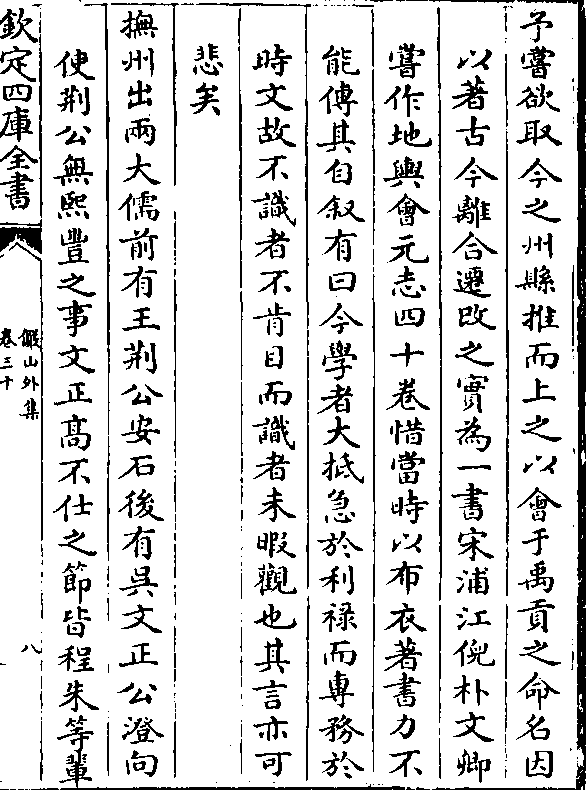 予嘗欲取今之州縣推而上之以會于禹貢之命名因
以著古今離合遷改之實為一書宋浦江倪朴文卿
嘗作地輿會元志四十卷惜當時以布衣著書力不
能傳其自叙有曰今學者大抵急於利祿而專務於
時文故不識者不肯目而識者未暇觀也其言亦可
悲矣
撫州出兩大儒前有王荆公安石後有吳文正公澄向
使荆公無熙豐之事文正高不仕之節皆程朱等輩
欽定四庫全書
儼山外集
卷三十
八